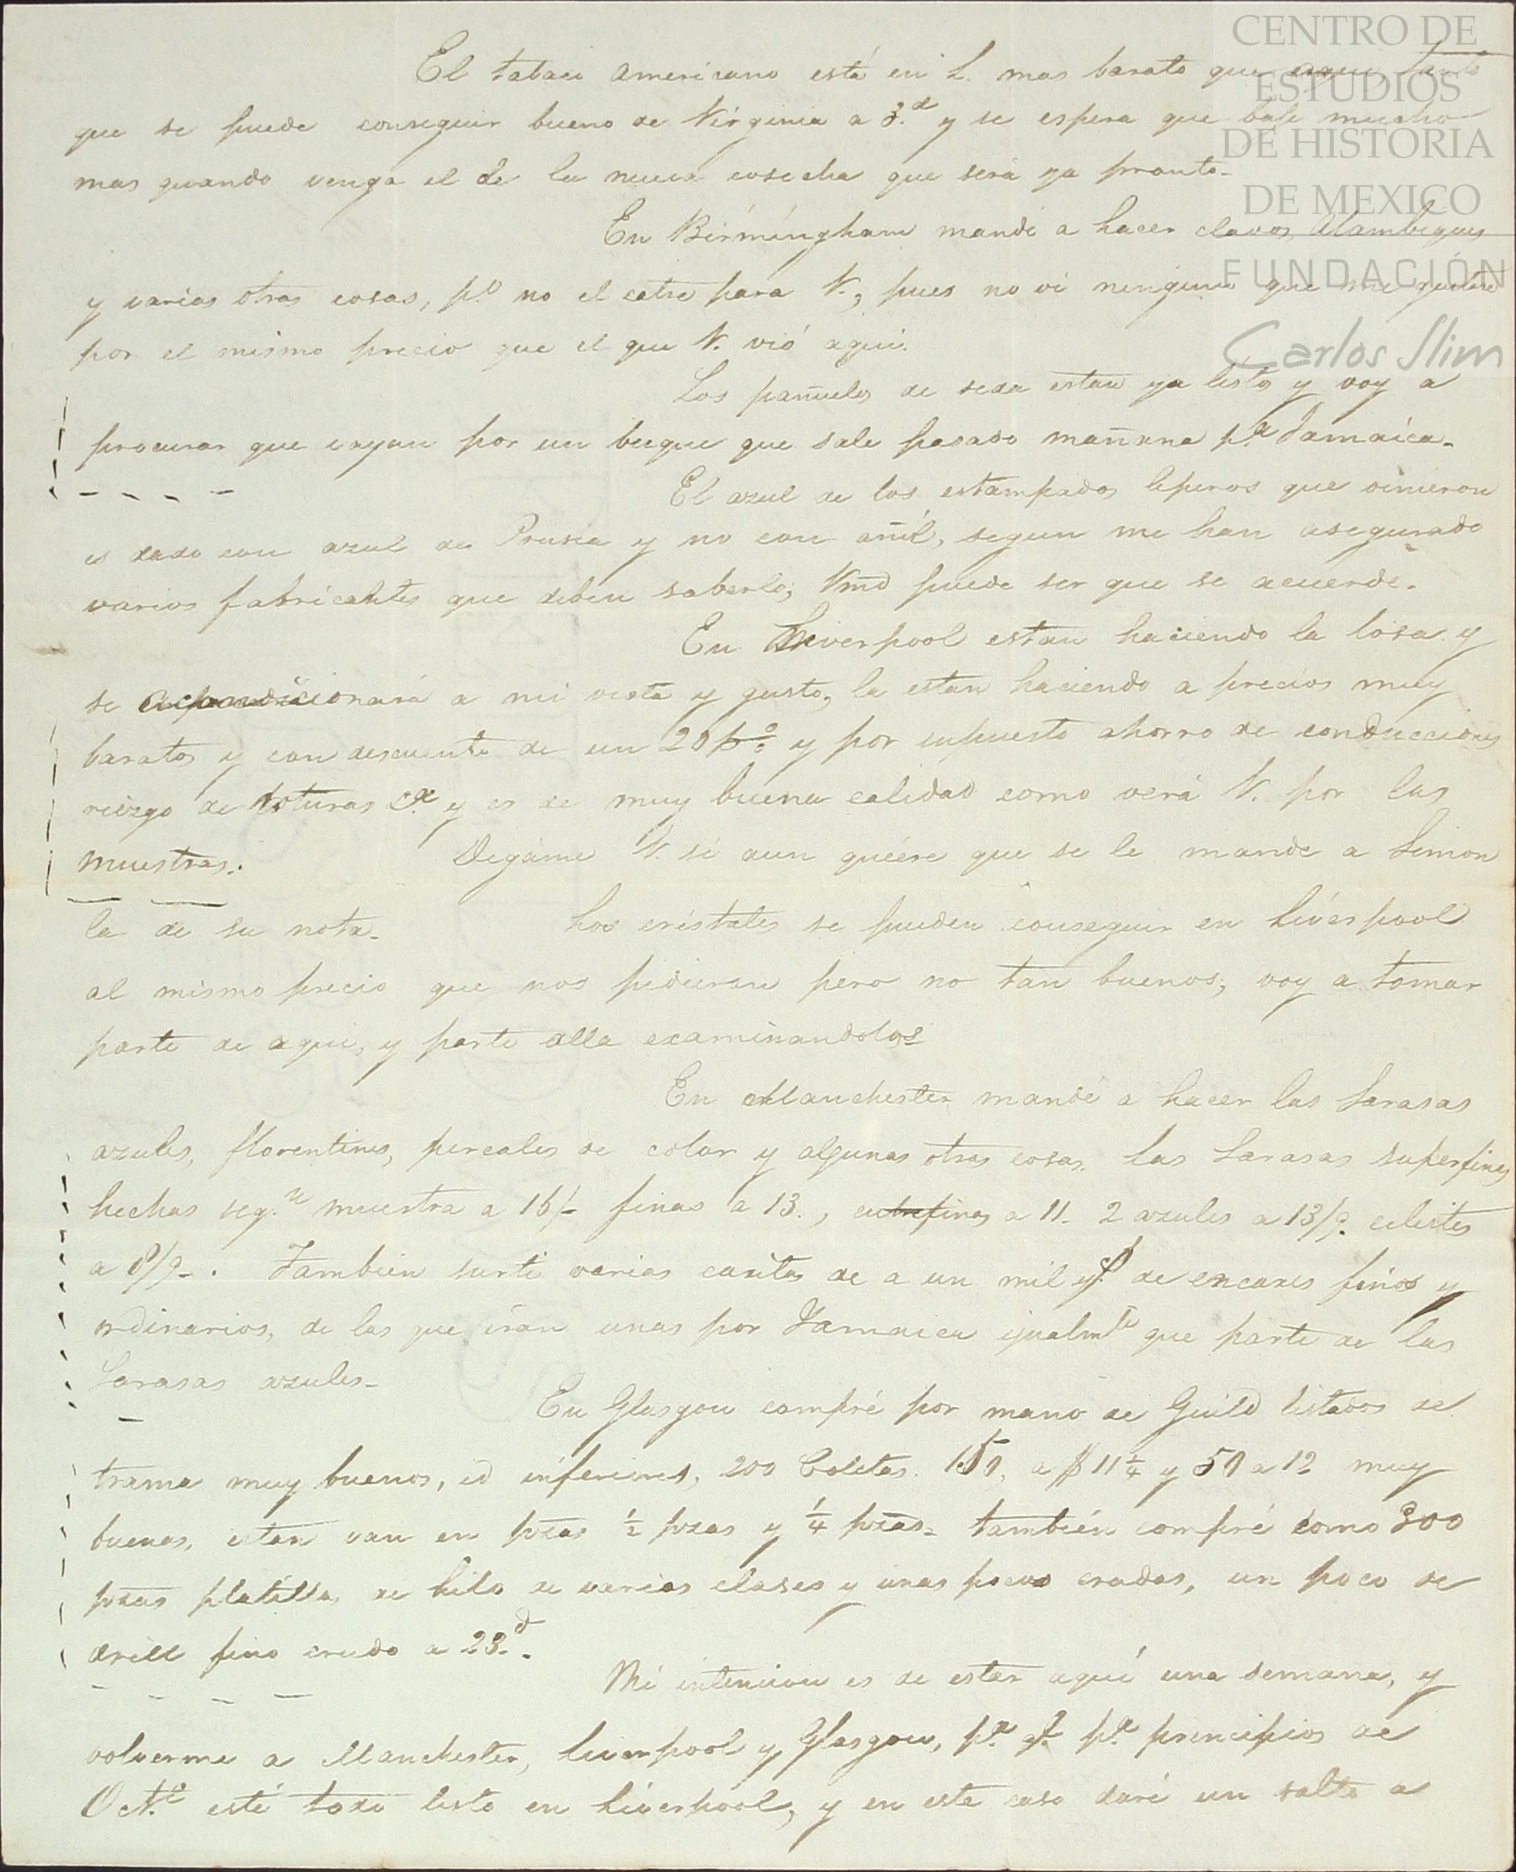 CENTRO DE
ESTUDIOS
DE HISTORIA
DE MEXICO
FUNDACIÓN
Carlos Slim
El tabaco Americano está en L. mas barato que aqui, tanto
que se puede conseguir bueno de Virginia a 3.d y se espera que baje mucho
mas quando venga el de la nueva cosecha que será ya pronto.
En Birmingham mandé a hacer clavos, Alambiques
y varias otras cosas, p.o no el catre para V., pues no ví ninguno que me gustase
por el mismo precio que el que V. vió aqui.
Los pañuelos de seda estan ya listos y voy a
procurar que vayan por un buque que sale pasado mañana p.a Jamaica.
El azul de los estampados leperos que vinieron
es dado con azul de Prusia y no con añil, segun me han asegurado
varios fabricantes que deben saberlo, Vmd puede ser que se acuerde.
En Liverpool estan haciendo la losa y
se acondicionará a mi vista y gusto, la estan haciendo a precios muy
baratos y con descuento de un 20 p% y por supuesto ahorro de conducciones
riezgo de roturas &a y es de muy buena calidad como verá V. por las
muestras. Digáme V. si aun quiere que se le mande a Simon
la de su nota. Los cristales se pueden conseguir en Liverpool
al mismo precio que nos pidieron pero no tan buenos; voy a tomar
parte de aqui, y parte alla examinandolos
En Manchester mandé a hacer las Sarasas
azules, florentines, percales de color y algunas otras cosas. Las Sarasas superfinas
hechas seg.n muestra a 16/- finas a 13., entrefinas a 11. 2 azules a 13/9. celestes
a 8/9-. Tambien surti varias caxitas de a un mil y de encaxes finos y
ordinarios, de las que irán unas por Jamaica igualmte que parte de las
Sarasas azules-
En Glasgow compré por mano de Guild listados de
trama muy buenos, id inferiores, 200 Coletas. 150, a $ 11 1/4 y 50 a 12 muy
buenas, estan van en pzas 1/2 pzas y 1/4 pzas. tambien compré como 300
pzas platillas de hilo de varias clases y unas pocas crudas, un poco de
drill fino crudo a 23.d.
Mi intencion es de estar aquí una semana, y
volverme a Manchester, Liverpool y Glasgow, p.a q.e p.a principios de
Oct.e esté todo listo en Liverpool, y en este caso daré un salto a